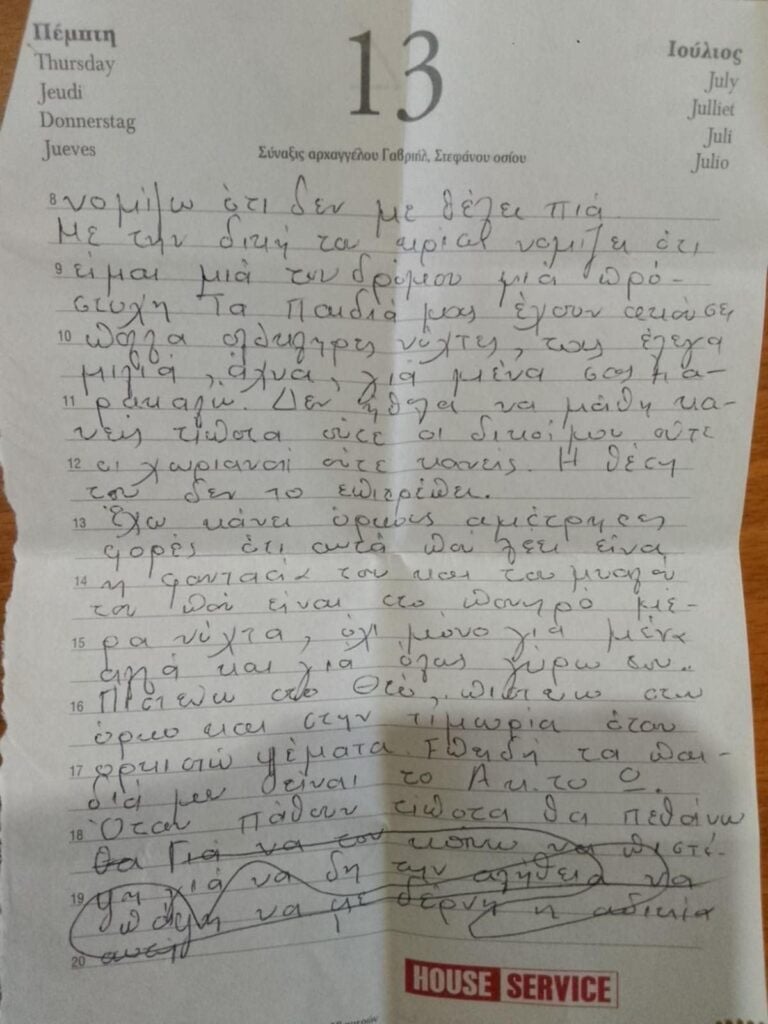 Πέμπτη
Thursday
Jeudi
Donnerstag
Jueves
13
Ιούλιος
July
Julliet
Juli
Julio
Σύναξις αρχαγγέλου Γαβριήλ, Στεφάνου οσίου
8 νομίζω ότι δεν με θέλει πιά
Με την δική του νομίζει ότι
9 είμαι μιά του δρόμου μιά πρό-
στυχη Τα Παιδιά μας έχουν ακούσει
10 πολλα ολόκληρες νύχτες, τους έλεγα
μιλιά, άχνα, γιά μένα σας πα-
11 ρακαλω. Δεν ήθελα να μάθη κα-
νείς τίποτα ούτε οι δικοί μου ούτε
12 οι χωριανοί ούτε κανείς. Η θέση
του δεν το επιτρέπει.
13 Έχω κάνει όρκους αμέτρητες
φορές ότι αυτά που λέει είναι
14 η φαντασία του και του μυαλού
του που είναι στο πονηρό μέ-
15 ρα νύχτα, όχι μόνο γιά μένα
αλλά και για όλους γύρω του..
16 Πιστεύω στο Θεό, πιστεύω στον
όρκο και στην τιμωρία όταν
17 ορκιστώ ψέματα. Επειδή τα παι-
διά μου είναι το Α κ. το Ω.
18 Όταν πάθουν τίποτα θα πεθάνω
θα Γιά να τον κάνω να πιστέ-
19 ψη γιά να δη την αλήθεια να
πάψη να με δέρνη η αδικία
20 αυτή
HOUSE SERVICE